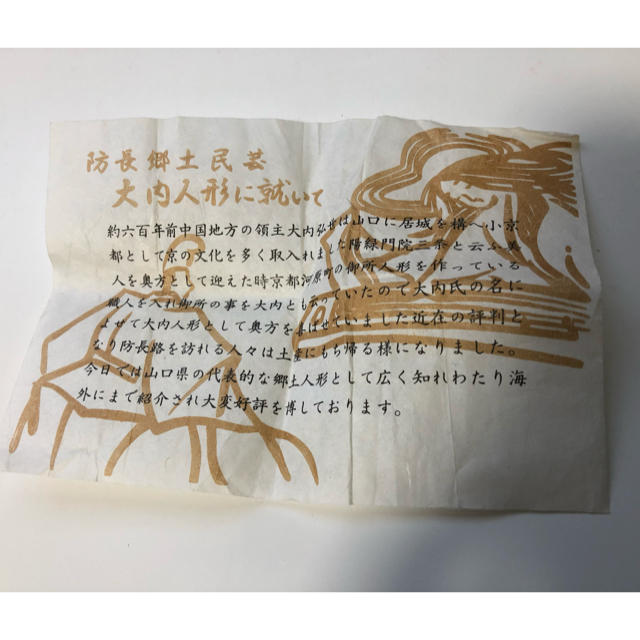 防長郷土民芸
大内人形に就いて
約六百年前中国地方の領主大内弘世は山口に居城を構へ小京
都として京の文化を多く取入れました陽緑門院三条と云ふ美
人を奥方として迎えた時京都河原町の御所人形を作っている
職人を入れ御所の事を大内とも云っていたので大内氏の名に
よせて大内人形として奥方を喜ばせていました近在の評判と
なり防長路を訪れる人々は土産にもち帰る様になりました。
今日では山口県の代表的な郷土人形として広く知れわたり海
外にまで紹介され大変好評を博しております。